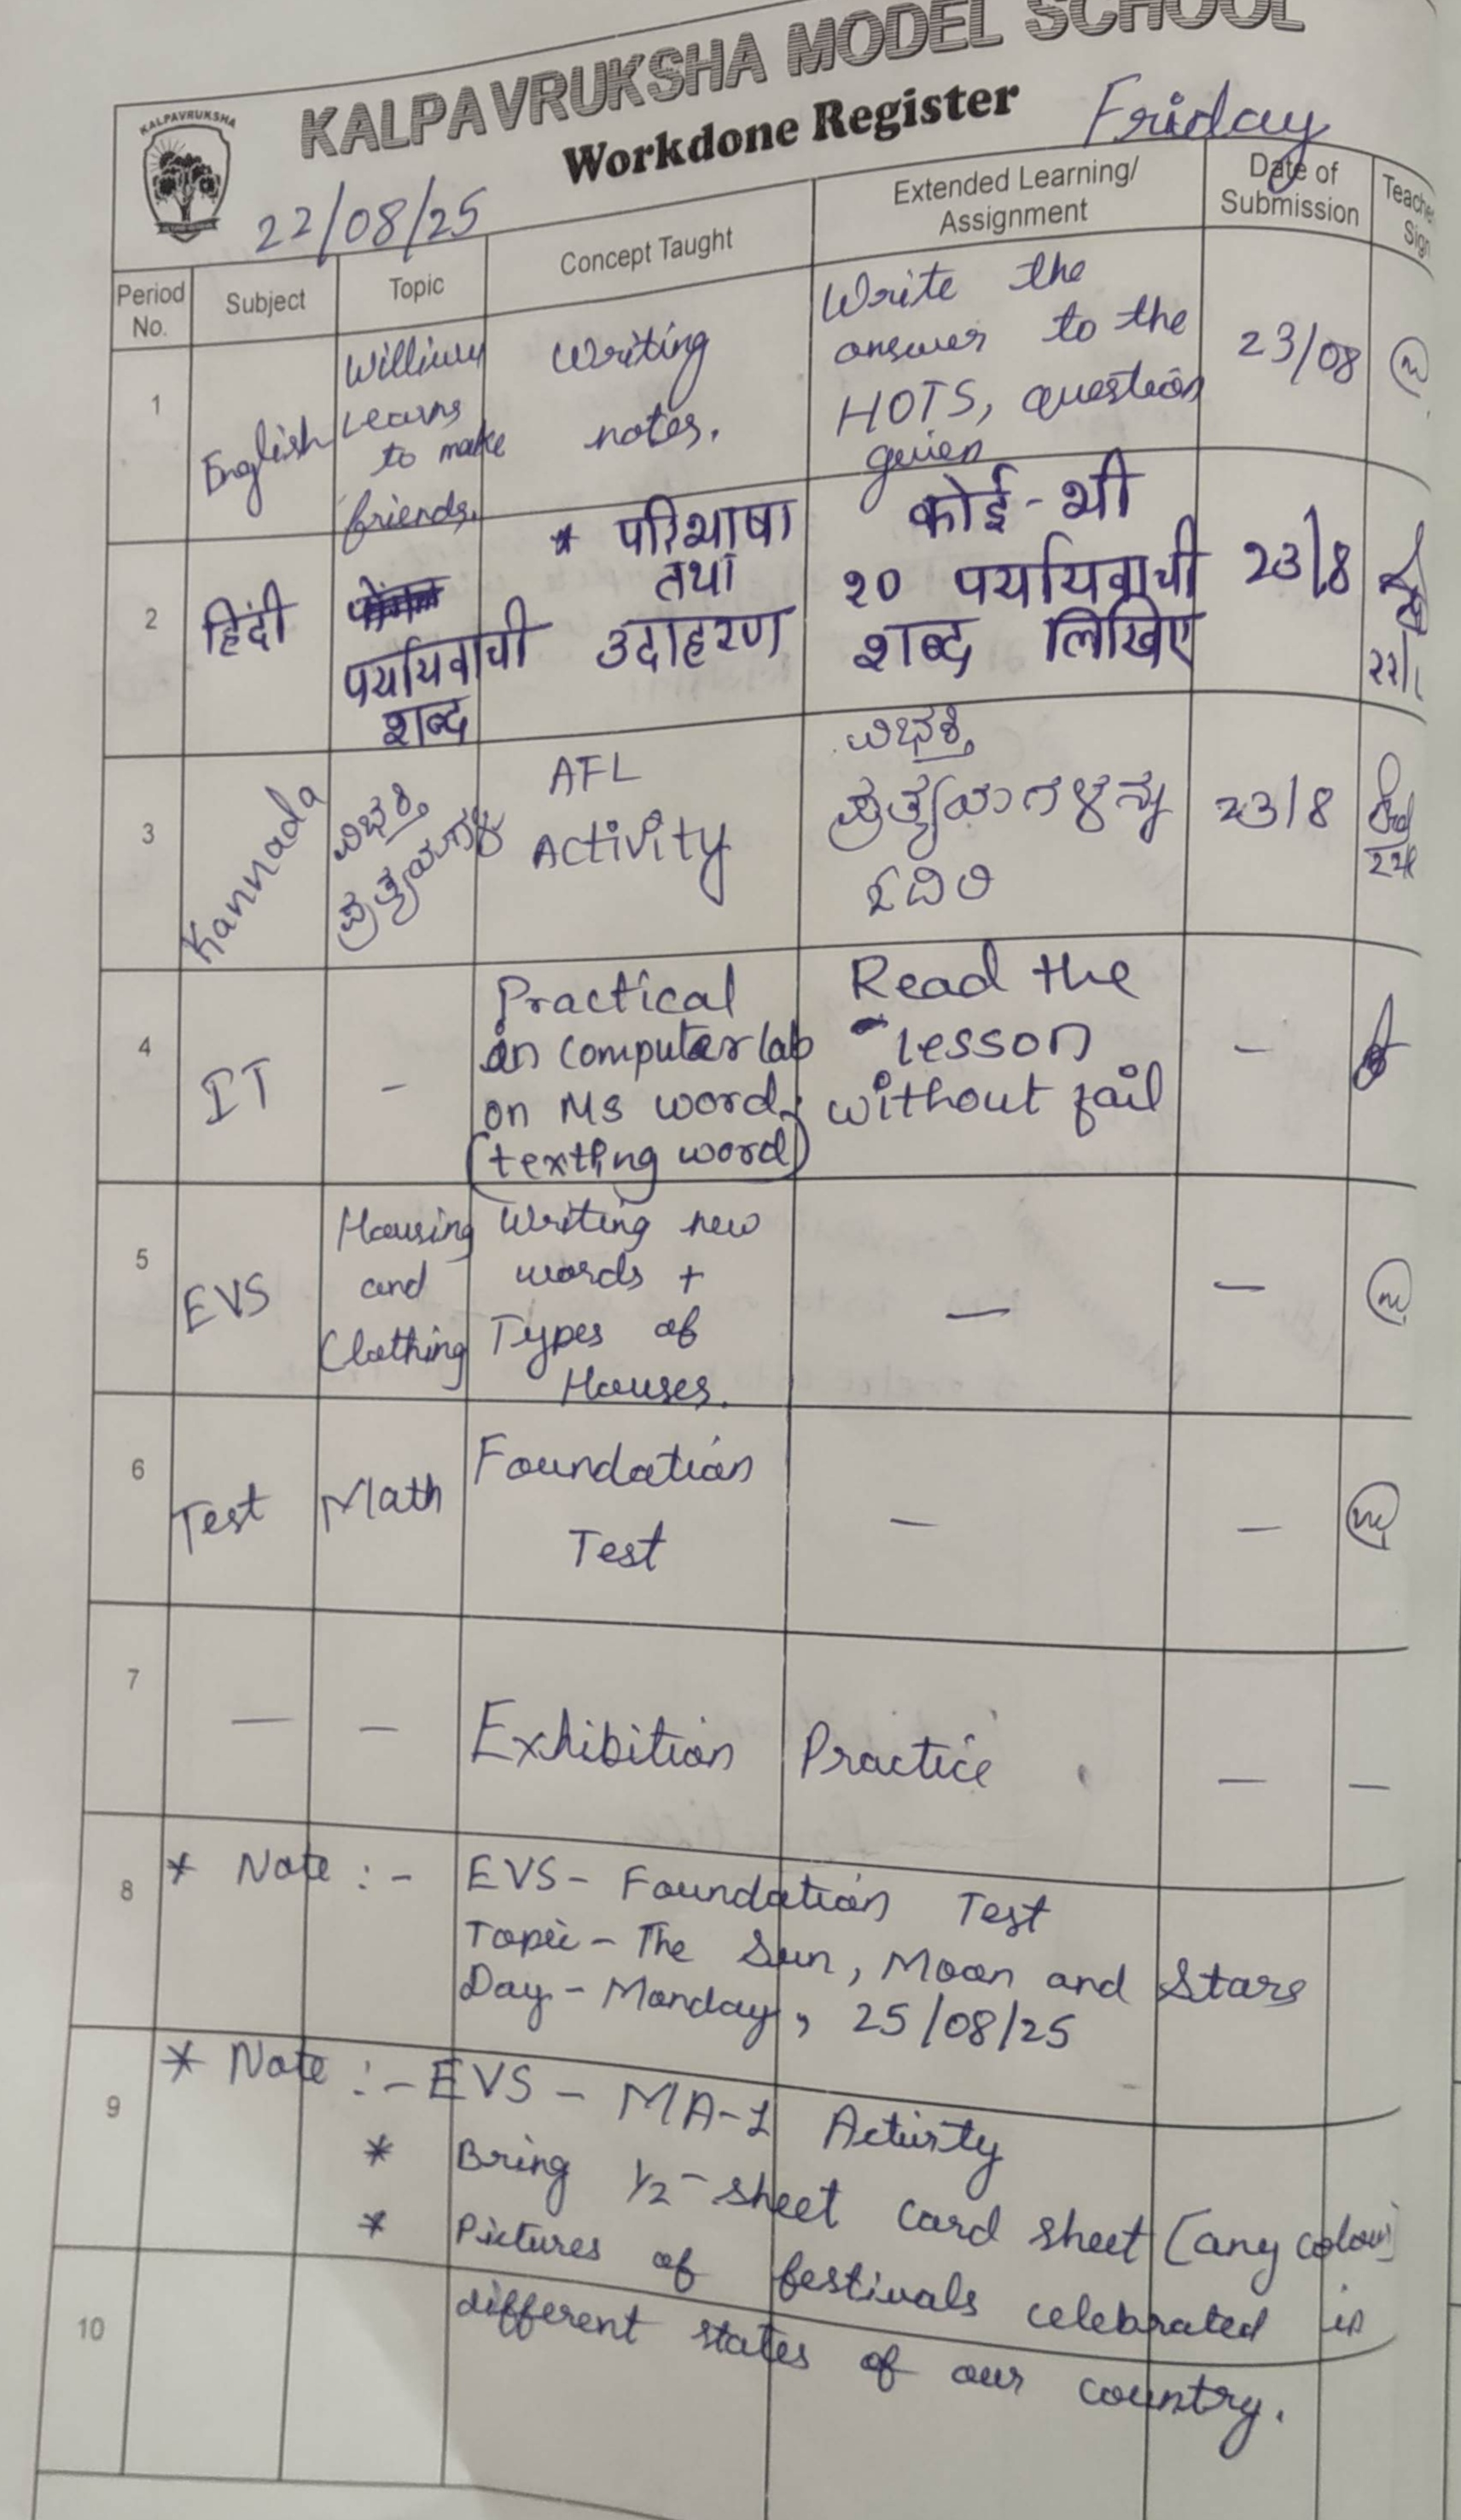 KALPAVRUKSHA MODEL SCHOOL
KALPAVRUKSHA
Workdone Register
Friday
22/08/25
Period No.
Subject
Topic
Concept Taught
Extended Learning/ Assignment
Date of Submission
1
English
Learns
to make
friends.
Writing
notes.
Write the
answer to the
HOTS, question
given
23/08
2
हिंदी
पर्यायवाची
शब्द
* परिभाषा
तथा
उदाहरण
कोई-भी
२० पर्यायवाची
शब्द लिखिए
23/8
3
Kannada
AFL
Activity
23/8
4
IT
-
Practical
in computer lab
on MS word.
(texting word)
Read the
lesson
without fail
-
5
EVS
Housing
and
Clothing
Writing new
words +
Types of
Houses.
-
-
6
Test
Math
Foundation
Test
-
-
7
-
-
Exhibition Practice
-
-
8
* Note :- EVS - Foundation Test
Topic - The Sun, Moon and Stars
Day - Monday, 25/08/25
9
* Note :- EVS - MA-1 Activity
* Bring 1/2 - sheet card sheet (any colour)
* Pictures of festivals celebrated in
10
different states of our country.